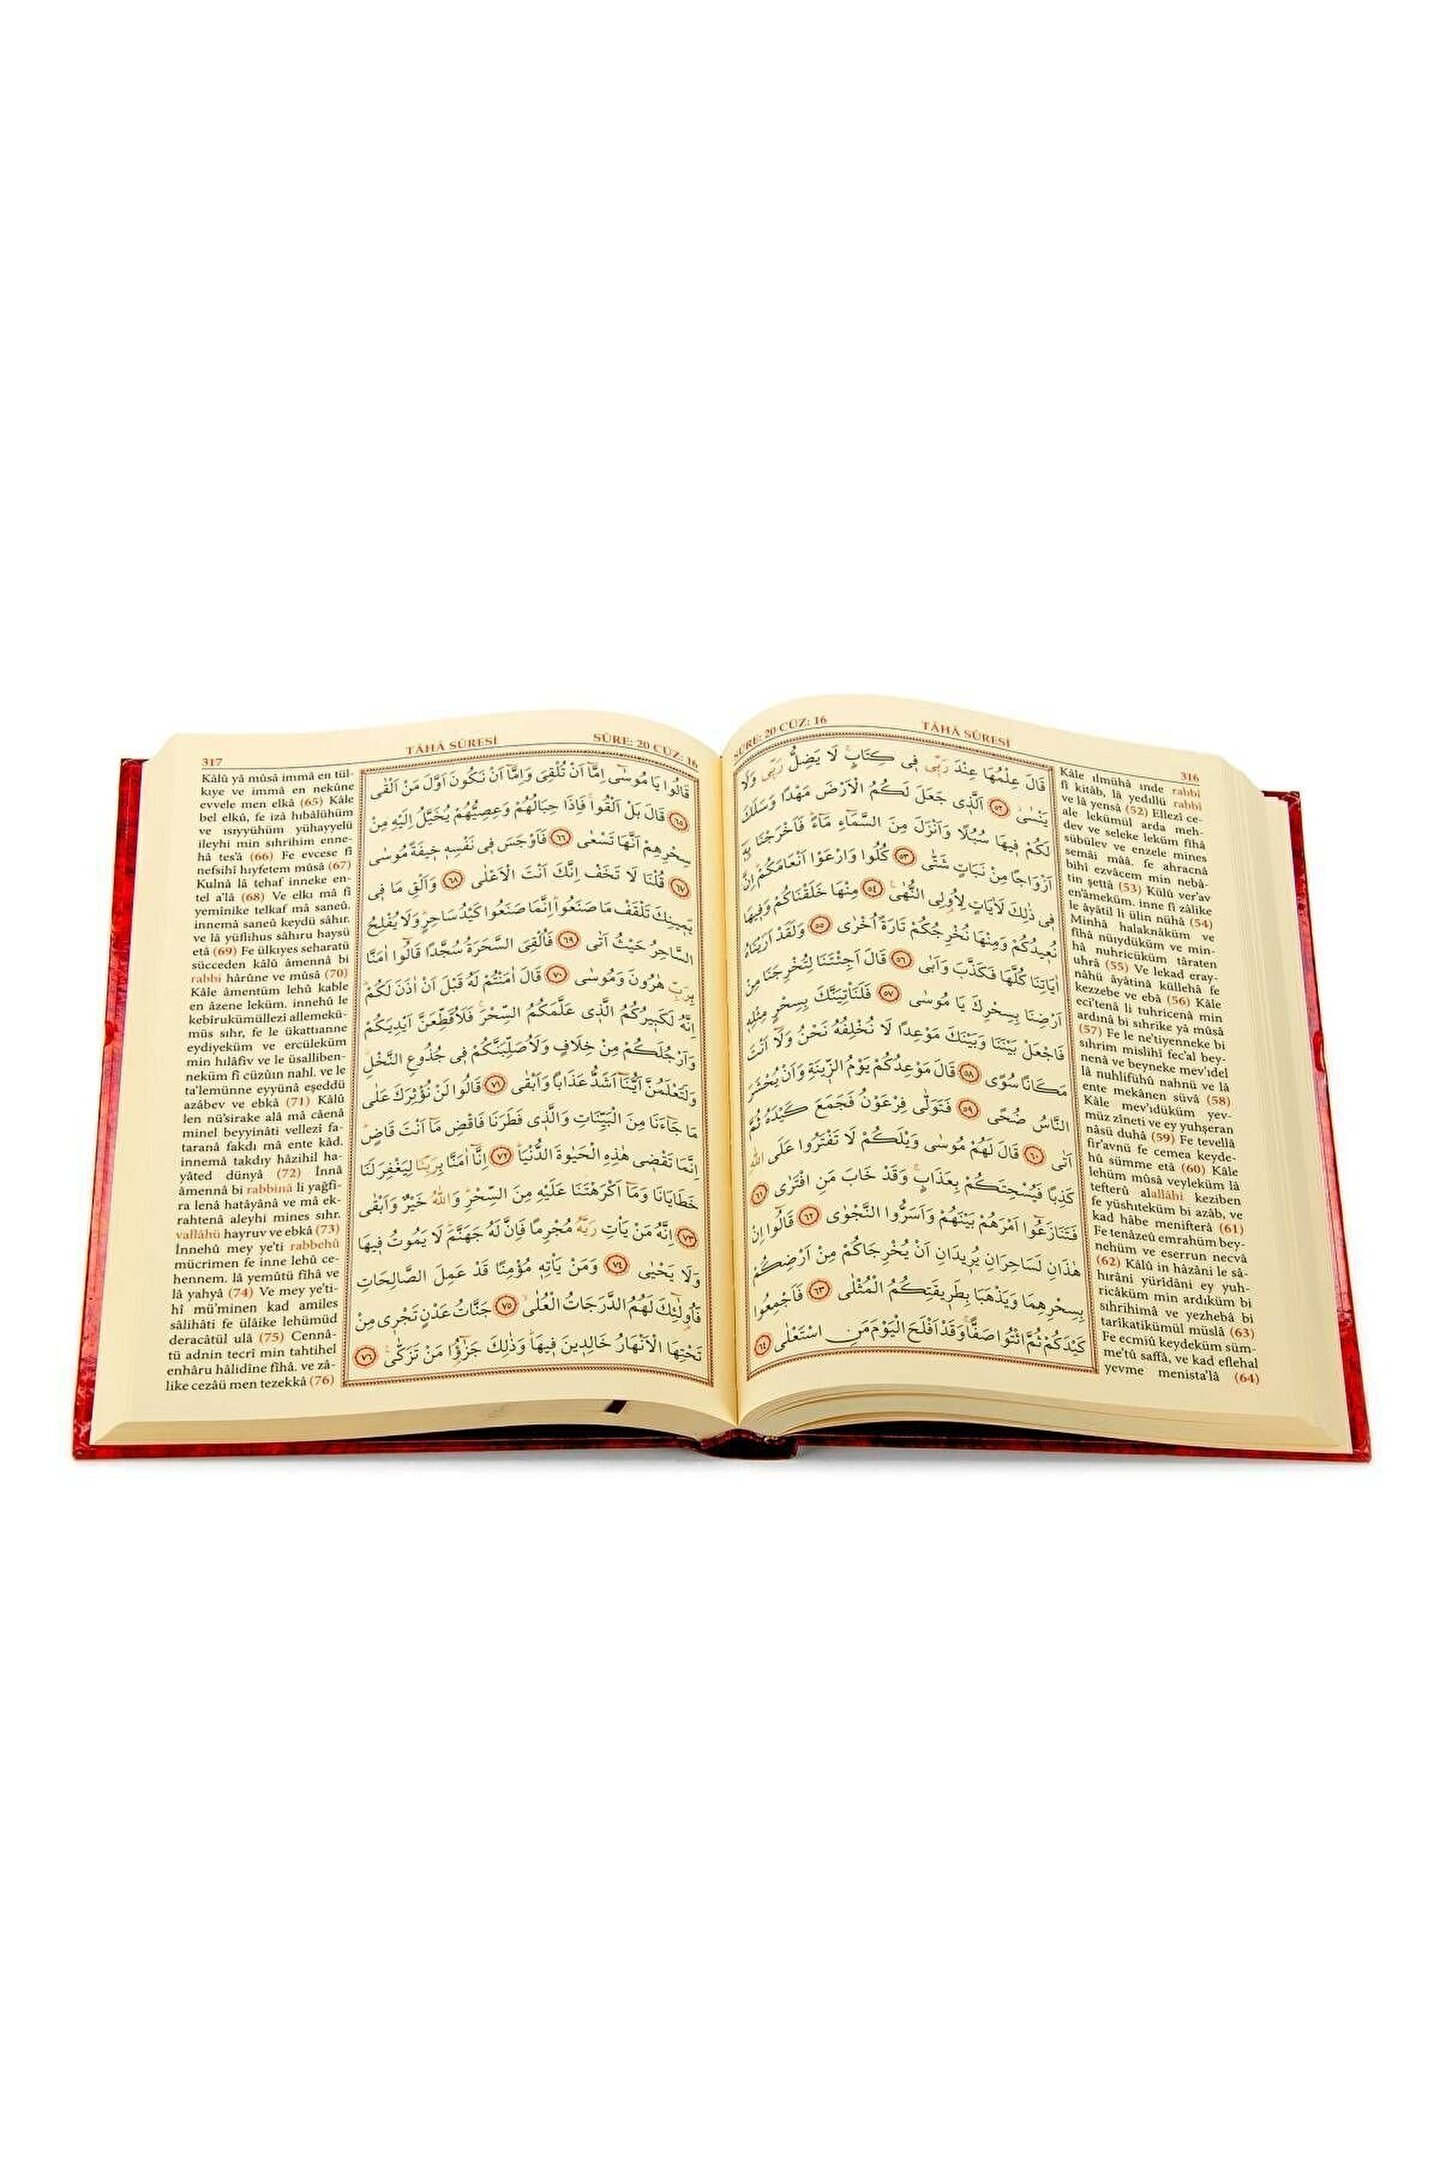 SÛRE: 20 CÜZ: 16
TÂHÂ SÛRESİ
316
قَالَ عِلْمُهَا عِنْدَ رَبّ۪ي ف۪ي كِتَابٍۚ لَا يَضِلُّ رَبّ۪ي وَلَا
يَنْسٰىۘ ﴿٥٢﴾ اَلَّذ۪ي جَعَلَ لَكُمُ الْاَرْضَ مَهْدًا وَسَلَكَ
لَكُمْ ف۪يهَا سُبُلًا وَاَنْزَلَ مِنَ السَّمَٓاءِ مَٓاءًۜ فَاَخْرَجْنَا بِه۪ٓ
اَزْوَاجًا مِنْ نَبَاتٍ شَتّٰى ﴿٥٣﴾ كُلُوا وَارْعَوْا اَنْعَامَكُمْۜ اِنَّ
ف۪ي ذٰلِكَ لَاٰيَاتٍ لِاُو۬لِي النُّهٰى۟ ﴿٥٤﴾ مِنْهَا خَلَقْنَاكُمْ وَف۪يهَا
نُع۪يدُكُمْ وَمِنْهَا نُخْرِجُكُمْ تَارَةً اُخْرٰى ﴿٥٥﴾ وَلَقَدْ اَرَيْنَاهُ
اٰيَاتِنَا كُلَّهَا فَكَذَّبَ وَاَبٰى ﴿٥٦﴾ قَالَ اَجِئْتَنَا لِتُخْرِجَنَا مِنْ
اَرْضِنَا بِسِحْرِكَ يَا مُوسٰى ﴿٥٧﴾ فَلَنَأْتِيَنَّكَ بِسِحْرٍ مِثْلِه۪
فَاجْعَلْ بَيْنَنَا وَبَيْنَكَ مَوْعِدًا لَا نُخْلِفُهُ نَحْنُ وَلَٓا اَنْتَ
مَكَانًا سُوًى ﴿٥٨﴾ قَالَ مَوْعِدُكُمْ يَوْمُ الزّ۪ينَةِ وَاَنْ يُحْشَرَ
النَّاسُ ضُحًى ﴿٥٩﴾ فَتَوَلّٰى فِرْعَوْنُ فَجَمَعَ كَيْدَهُ ثُمَّ
اَتٰى ﴿٦٠﴾ قَالَ لَهُمْ مُوسٰى وَيْلَكُمْ لَا تَفْتَرُوا عَلَى اللّٰهِ
كَذِبًا فَيُسْحِتَكُمْ بِعَذَابٍۚ وَقَدْ خَابَ مَنِ افْتَرٰى ﴿٦١﴾
فَتَنَازَعُٓوا اَمْرَهُمْ بَيْنَهُمْ وَاَسَرُّوا النَّجْوٰى ﴿٦٢﴾ قَالُٓوا اِنْ
هٰذَانِ لَسَاحِرَانِ يُر۪يدَانِ اَنْ يُخْرِجَاكُمْ مِنْ اَرْضِكُمْ
بِسِحْرِهِمَا وَيَذْهَبَا بِطَر۪يقَتِكُمُ الْمُثْلٰى ﴿٦٣﴾ فَاَجْمِعُوا
كَيْدَكُمْ ثُمَّ ائْتُوا صَفًّاۚ وَقَدْ اَفْلَحَ الْيَوْمَ مَنِ اسْتَعْلٰى ﴿٦٤﴾
Kâle ılmühâ ınde rabbi
fî kitâb, lâ yedıllü rabbi
ve lâ yensâ (52) Ellezî ce-
ale lekümül arda meh-
dev ve seleke leküm fîhâ
sübülev ve enzele mines
semâi mâà. fe ahracnâ
bihî ezvâcem min nebâ-
tin şettâ (53) Külû ver'av
en'âmeküm. inne fî zâlike
le âyâtil li ülin nühâ (54)
Minhâ halaknâküm ve
fîhâ nüıydüküm ve min-
hâ nuhricüküm târaten
uhrâ (55) Ve lekad eray-
nâhü âyâtinâ küllehâ fe
kezzebe ve ebâ (56) Kâle
eci'tenâ li tuhricenâ min
ardınâ bi sıhrike yâ mûsâ
(57) Fe le ne'tiyenneke bi
sıhrim mislihî fec'al bey-
nenâ ve beyneke mev'ıdel
lâ nuhlifühû nahnü ve lâ
ente mekânen süvâ (58)
Kâle mev'ıdüküm yev-
müz zîneti ve ey yuhşeran
nâsü duhâ (59) Fe tevellâ
fir'avnü fe cemea keyde-
hû sümme etâ (60) Kâle
lehüm mûsâ veyleküm lâ
tefterû alallâhi keziben
fe yüshıteküm bi azâb, ve
kad hâbe menifterâ (61)
Fe tenâzeû emrahüm bey-
nehüm ve eserrun necvâ
(62) Kâlû in hâzâni le sâ-
hırâni yürîdâni ey yuh-
ricâküm min ardıküm bi
sıhrihimâ ve yezhebâ bi
tarîkatikümül müslâ (63)
Fe ecmiû keydeküm süm-
me'tû saffâ, ve kad eflehal
yevme menista'lâ (64)
317
TÂHÂ SÛRESİ
SÛRE: 20 CÜZ: 16
قَالُوا يَا مُوسٰٓى اِمَّٓا اَنْ تُلْقِيَ وَاِمَّٓا اَنْ نَكُونَ اَوَّلَ مَنْ اَلْقٰى
﴿٦٥﴾ قَالَ بَلْ اَلْقُواۚ فَاِذَا حِبَالُهُمْ وَعِصِيُّهُمْ يُخَيَّلُ اِلَيْهِ مِنْ
سِحْرِهِمْ اَنَّهَا تَسْعٰى ﴿٦٦﴾ فَاَوْجَسَ ف۪ي نَفْسِه۪ خ۪يفَةً مُوسٰى
﴿٦٧﴾ قُلْنَا لَا تَخَفْ اِنَّكَ اَنْتَ الْاَعْلٰى ﴿٦٨﴾ وَاَلْقِ مَا ف۪ي
يَم۪ينِكَ تَلْقَفْ مَا صَنَعُواۜ اِنَّمَا صَنَعُوا كَيْدُ سَاحِرٍۜ وَلَا يُفْلِحُ
السَّاحِرُ حَيْثُ اَتٰى ﴿٦٩﴾ فَاُلْقِيَ السَّحَرَةُ سُجَّدًا قَالُٓوا اٰمَنَّا
بِرَبِّ هٰرُونَ وَمُوسٰى ﴿٧٠﴾ قَالَ اٰمَنْتُمْ لَهُ قَبْلَ اَنْ اٰذَنَ لَكُمْۜ
اِنَّهُ لَكَب۪يرُكُمُ الَّذ۪ي عَلَّمَكُمُ السِّحْرَۚ فَلَاُقَطِّعَنَّ اَيْدِيَكُمْ
وَاَرْجُلَكُمْ مِنْ خِلَافٍ وَلَاُصَلِّبَنَّكُمْ ف۪ي جُذُوعِ النَّخْلِۘ
وَلَتَعْلَمُنَّ اَيُّنَٓا اَشَدُّ عَذَابًا وَاَبْقٰى ﴿٧١﴾ قَالُوا لَنْ نُؤْثِرَكَ عَلٰى
مَا جَٓاءَنَا مِنَ الْبَيِّنَاتِ وَالَّذ۪ي فَطَرَنَا فَاقْضِ مَٓا اَنْتَ قَاضٍۜ
اِنَّمَا تَقْض۪ي هٰذِهِ الْحَيٰوةَ الدُّنْيَاۜ ﴿٧٢﴾ اِنَّٓا اٰمَنَّا بِرَبِّنَا لِيَغْفِرَ لَنَا
خَطَايَانَا وَمَٓا اَكْرَهْتَنَا عَلَيْهِ مِنَ السِّحْرِۜ وَاللّٰهُ خَيْرٌ وَاَبْقٰى
﴿٧٣﴾ اِنَّهُ مَنْ يَأْتِ رَبَّهُ مُجْرِمًا فَاِنَّ لَهُ جَهَنَّمَۜ لَا يَمُوتُ ف۪يهَا
وَلَا يَحْيٰى ﴿٧٤﴾ وَمَنْ يَأْتِه۪ مُؤْمِنًا قَدْ عَمِلَ الصَّالِحَاتِ
فَاُو۬لٰٓئِكَ لَهُمُ الدَّرَجَاتُ الْعُلٰىۙ ﴿٧٥﴾ جَنَّاتُ عَدْنٍ تَجْر۪ي مِنْ
تَحْتِهَا الْاَنْهَارُ خَالِد۪ينَ ف۪يهَاۜ وَذٰلِكَ جَزٰٓؤُا مَنْ تَزَكّٰى۟ ﴿٧٦﴾
Kâlû yâ mûsâ immâ en tül-
kıye ve immâ en nekûne
evvele men elkâ (65) Kâle
bel elkû, fe izâ hıbâlühüm
ve ısıyyühüm yühayyelü
ileyhi min sıhrihim enne-
hâ tes'â (66) Fe evcese fî
nefsihî hıyfetem mûsâ (67)
Kulnâ lâ tehaf inneke en-
tel a'lâ (68) Ve elkı mâ fî
yemînike telkaf mâ saneû.
innemâ saneû keydü sâhır.
ve lâ yüflihus sâhıru haysü
etâ (69) Fe ülkıyes seharatü
sücceden kâlû âmennâ bi
rabbi hârûne ve mûsâ (70)
Kâle âmentüm lehû kable
en âzene leküm. innehû le
kebîrukümüllezî allemekü-
müs sıhr, fe le ükattıanne
eydiyeküm ve ercüleküm
min hılâfiv ve le üsalliben-
neküm fî cüzûın nahl. ve le
ta'lemünne eyyünâ eşeddü
azâbev ve ebkâ (71) Kâlû
len nü'sirake alâ mâ câenâ
minel beyyinâti vellezî fa-
taranâ fakdı mâ ente kâd.
innemâ takdıy hâzihil ha-
yâted dünyâ (72) İnnâ
âmennâ bi rabbinâ li yağfi-
ra lenâ hatâyânâ ve mâ ek-
rahtenâ aleyhi mines sıhr.
vallâhü hayruv ve ebkâ (73)
İnnehû mey ye'ti rabbehû
mücrimen fe inne lehû ce-
hennem. lâ yemûtü fîhâ ve
lâ yahyâ (74) Ve mey ye'ti-
hî mü'minen kad amiles
sâlihâti fe ülâike lehümüd
deracâtül ulâ (75) Cennâ-
tü adnin tecrî min tahtihel
enhâru hâlidîne fîhâ. ve zâ-
like cezâü men tezekkâ (76)